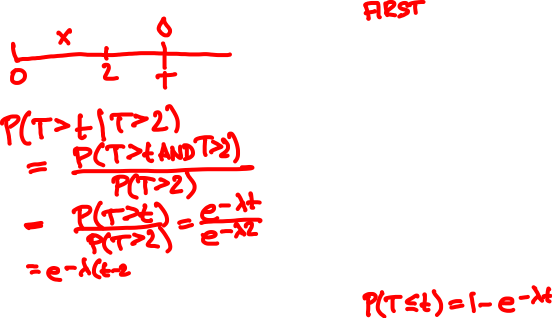 FIRST
x 0
0 2 T
P(T>t|T>2)
= P(T>t AND T>2)
P(T>2)
- P(T>t) = e-λt
P(T>2) e-λ2
= e-λ(t-2
P(T≤t) = 1 - e-λt